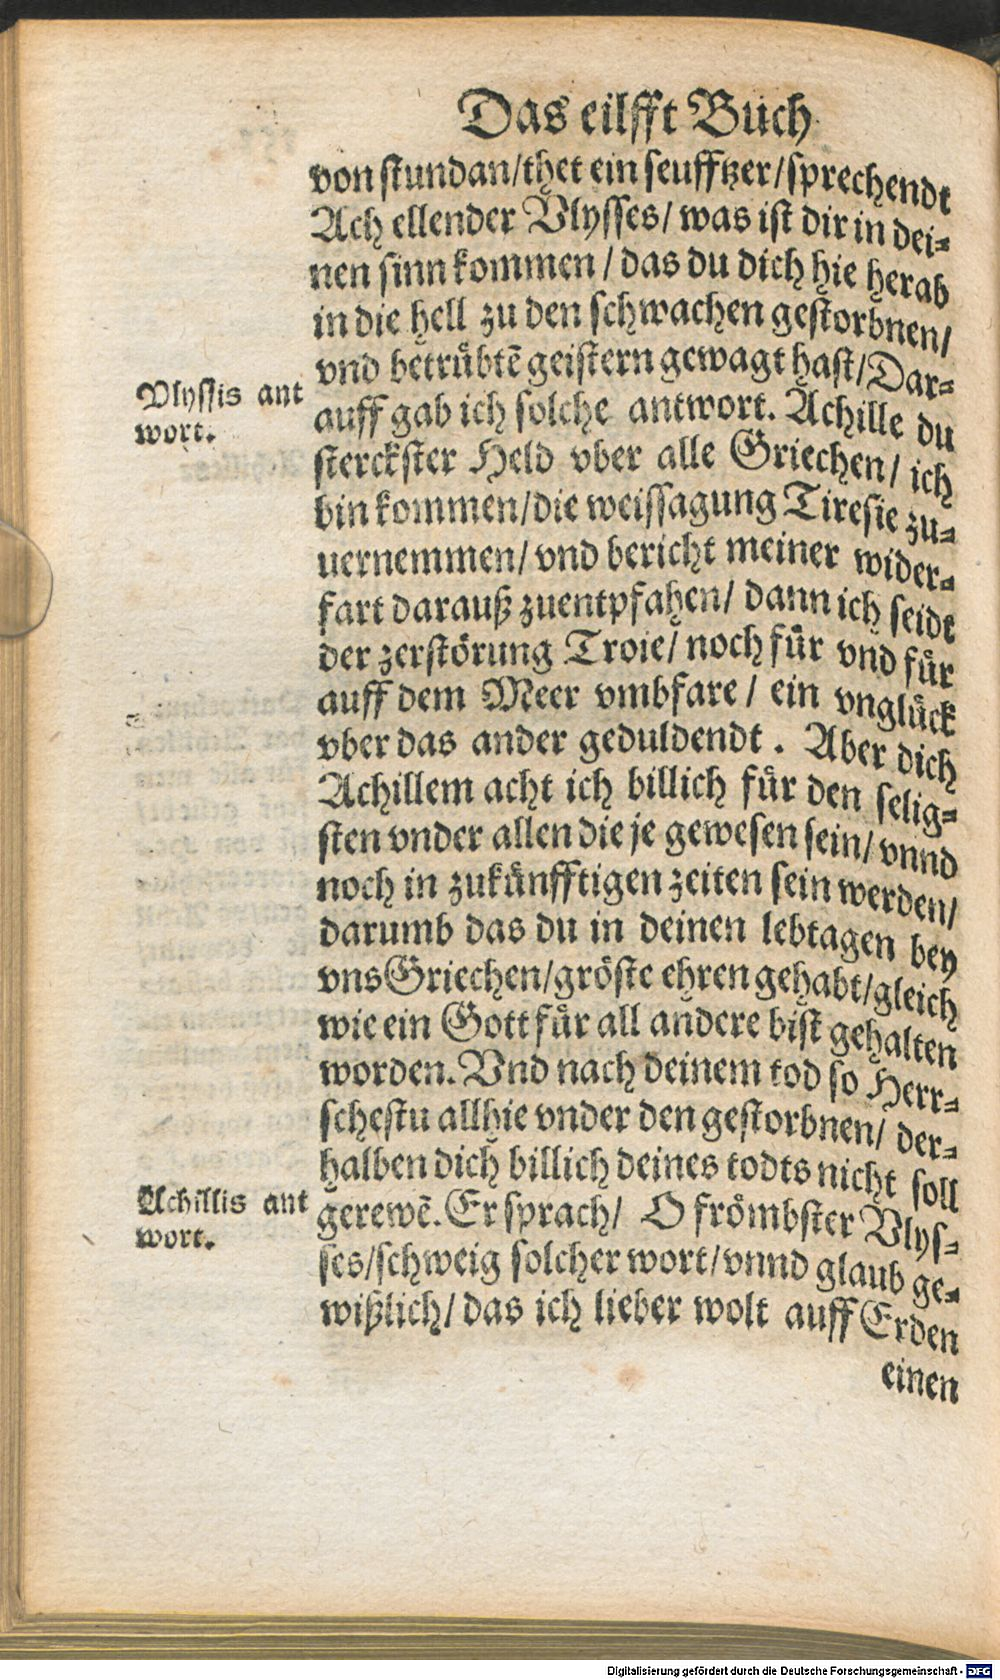 Das eilfft Buch
von stundan/thet ein seufftzer/sprechendt
Ach ellender Vlysses/ was ist dir in dei-
nen sinn kommen / das du dich hie herab
in die hell zu den schwachen gestorbnen/
vnd betrübtē geistern gewagt hast/Dar-
Vlyssis ant
wort.
auff gab ich solche antwort. Achille du
sterckster Held vber alle Griechen/ ich
bin kommen/die weissagung Tiresie zu-
uernemmen/ vnd bericht meiner wider-
fart darauß zuentpfahen/ dann ich seidt
der zerstörung Troie/ noch für vnd für
auff dem Meer vmbfare / ein vnglück
vber das ander geduldendt . Aber dich
Achillem acht ich billich für den selig-
sten vnder allen die je gewesen sein/ vnnd
noch in zukünfftigen zeiten sein werden/
darumb das du in deinen lebtagen bey
vns Griechen/gröste ehren gehabt/gleich
wie ein Gott für all andere bist gehalten
worden. Vnd nach deinem tod so Herr-
schestu allhie vnder den gestorbnen/ der-
halben dich billich deines todts nicht soll
Achillis ant
wort.
gerewē. Er sprach/ O frömbster Vlys-
ses/schweig solcher wort/vnnd glaub ge-
wißlich/ das ich lieber wolt auff Erden
einen
Digitalisierung gefördert durch die Deutsche Forschungsgemeinschaft - DFG